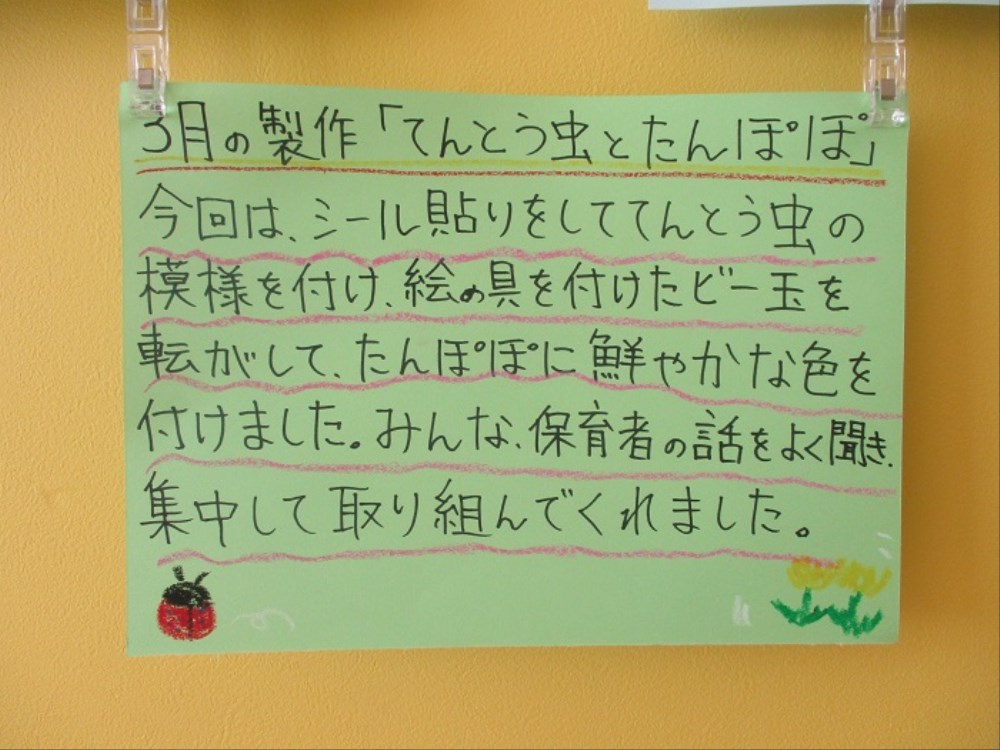 3月の製作「てんとう虫とたんぽぽ」
今回は、シール貼りをしててんとう虫の
模様を付け、絵の具を付けたビー玉を
転がして、たんぽぽに鮮やかな色を
付けました。みんな、保育者の話をよく聞き、
集中して取り組んでくれました。